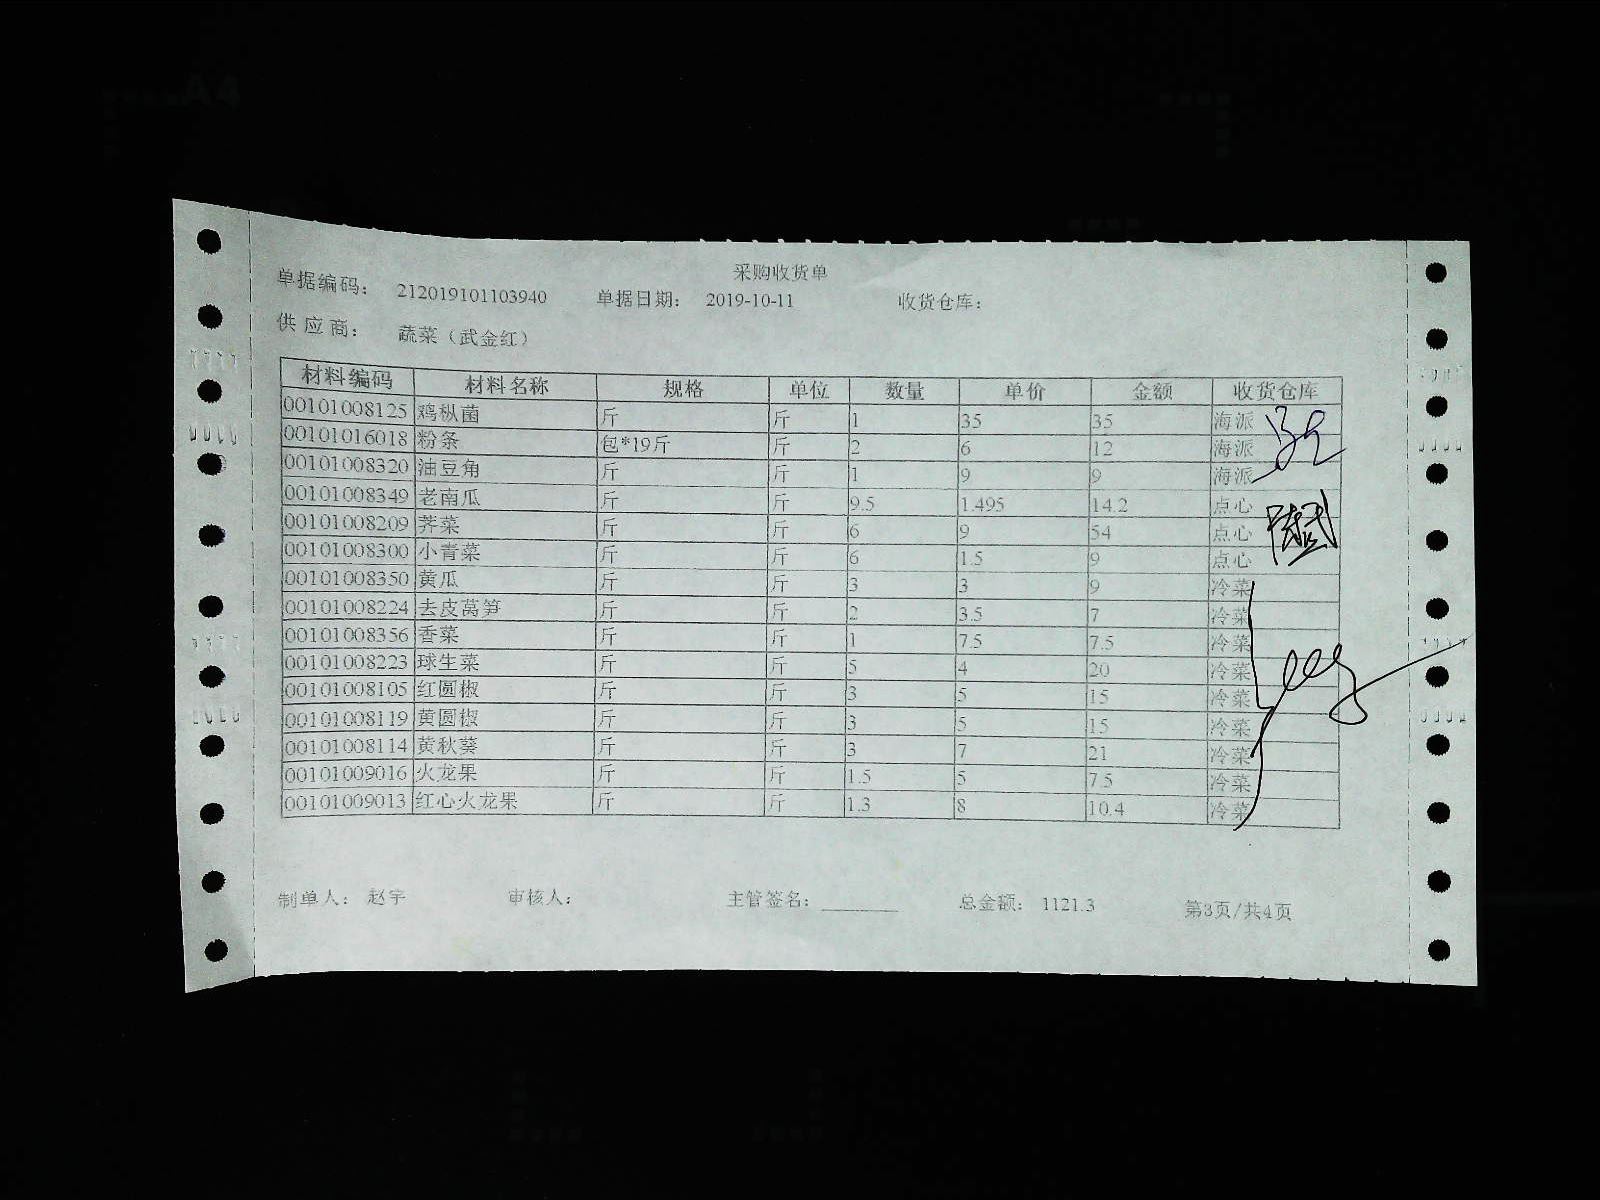 采购收货单
单据编码： 212019101103940 单据日期： 2019-10-11 收货仓库：
供应商： 蔬菜（武金红）
材料编码 材料名称 规格 单位 数量 单价 金额 收货仓库
00101008125 鸡枞菌 斤 斤 1 35 35 海派
00101016018 粉条 包*19斤 斤 2 6 12 海派
00101008320 油豆角 斤 斤 1 9 9 海派
00101008349 老南瓜 斤 斤 9.5 1.495 14.2 点心
00101008209 荠菜 斤 斤 6 9 54 点心
00101008300 小青菜 斤 斤 6 1.5 9 点心
00101008350 黄瓜 斤 斤 3 3 9 冷菜
00101008224 去皮莴笋 斤 斤 2 3.5 7 冷菜
00101008356 香菜 斤 斤 1 7.5 7.5 冷菜
00101008223 球生菜 斤 斤 5 4 20 冷菜
00101008105 红圆椒 斤 斤 3 5 15 冷菜
00101008119 黄圆椒 斤 斤 3 5 15 冷菜
00101008114 黄秋葵 斤 斤 3 7 21 冷菜
00101009016 火龙果 斤 斤 1.5 5 7.5 冷菜
00101009013 红心火龙果 斤 斤 1.3 8 10.4 冷菜
制单人： 赵宇 审核人： 主管签名：________ 总金额： 1121.3 第3页/共4页